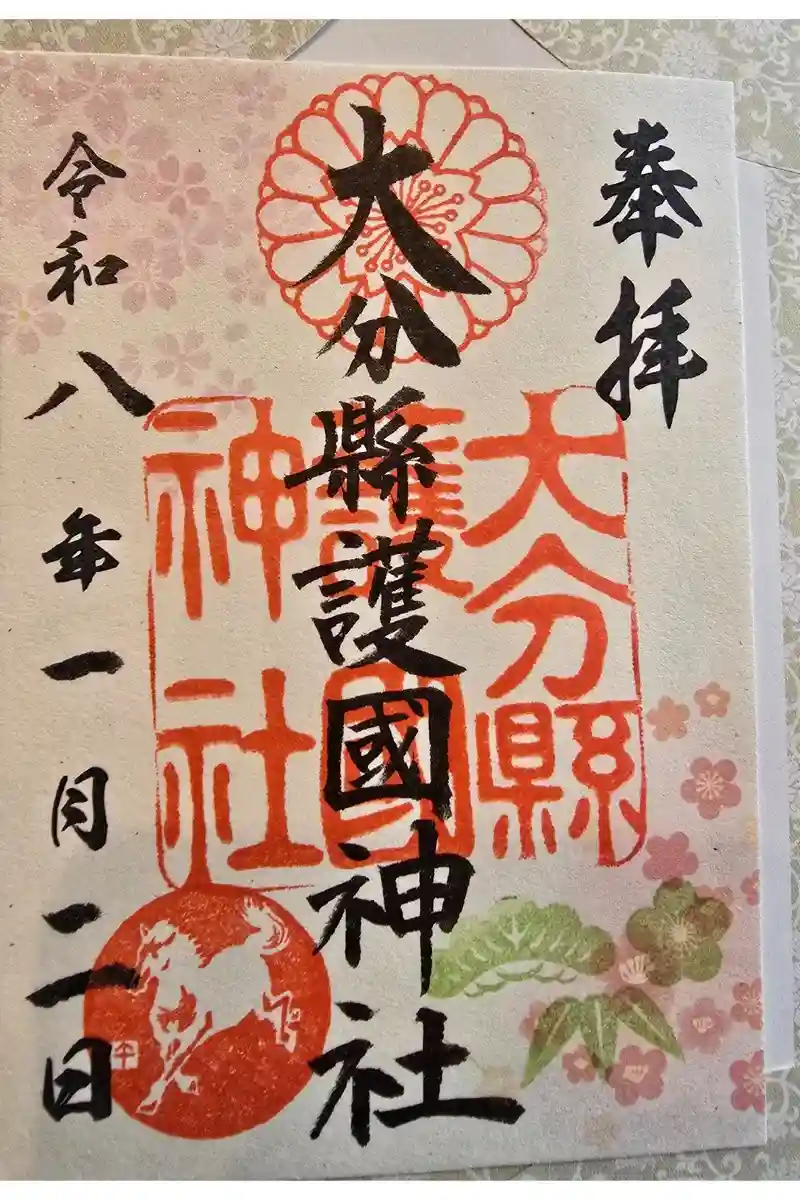 奉拝
大分縣護國神社
大分縣
護國
神社
令和八年一月二日
午